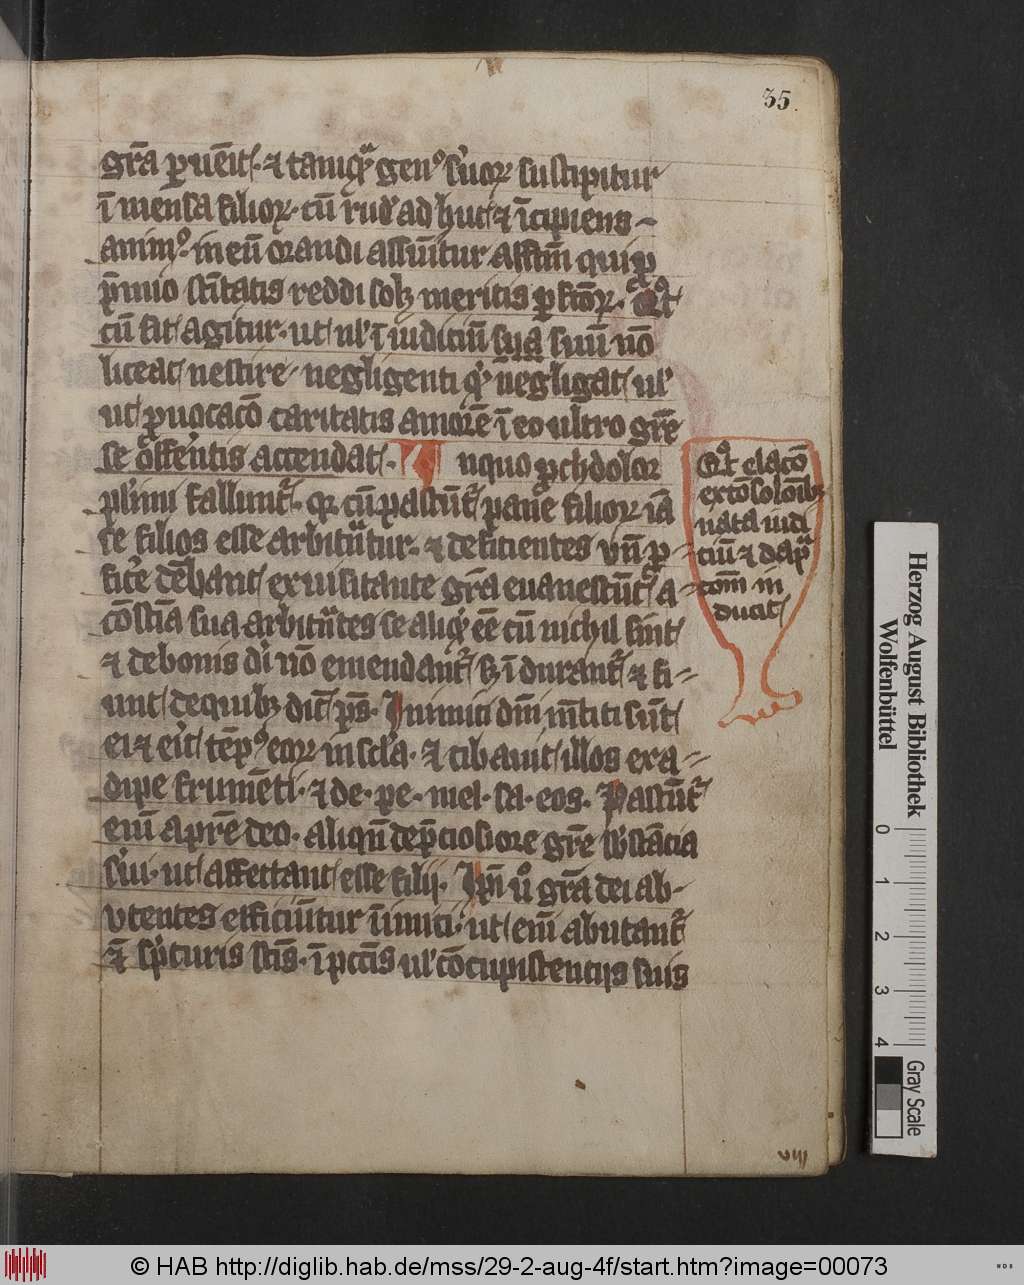 35.
gr̄a ꝑuēit · ⁊ tamqᷓ gen⁹ suoꝝ suscipitur
ī mensa filioꝝ · cū rud' ad huc ⁊ īcipiens
anim⁹ · in eū orandi assūitur affctm̄
p̄mio sc̄itatis reddi solꝫ meritis
cū fit agitur · ut ul' ī iudiciū suū nō
liceat nescire negligenti qᵈ negligat ul'
ut ꝓuocacō caritatis amorē ī eo ultro gr̄e
se offentis accendat · In quo ꝓch dolor
pl'imi fallunt̄ · qꝛ cū pascūt̄ pane filioꝝ iā
se filios esse arbitᷓntur · ⁊ deficientes vn̄ ꝓ
fic'e dēbant ex uisitante gr̄a euanescūt a
cōsc̄ia sua arbitᷓntes se aliqᵈ ēe cū nichil sint
⁊ de bonis di' nō emendant̄ sꝫ īdurant̄ ⁊ fi
unt de quibꝫ dic̄t p̄s · Inimici dn̄i m̄titi sūt
ei ⁊ eīt tēp⁹ eoꝝ in sc̄l'a · ⁊ cibauit illos ex a
dipe frumēti · ⁊ de · pe · mel · sa · eos · Pascūt̄
eīm a pr̄e deo · aliqn̄ de p̄ciosiore gr̄e sb'stācia
sui · ut affectant esse filij · Ip̄i ů gr̄a dei ab
vtentes efficiūtur īimici · ut eīm abutant̄
sc̄is · ī pcc̄is ul' cōcupiscentijs suis
Qᵈ elacō
ex cōsolōibꝫ
nata iudi
ciū ⁊ dapᷓ
tom̄ in
ducit
viij
Herzog August Bibliothek
Wolfenbüttel
0 1 2 3 4
Gray Scale
© HAB http://diglib.hab.de/mss/29-2-aug-4f/start.htm?image=00073